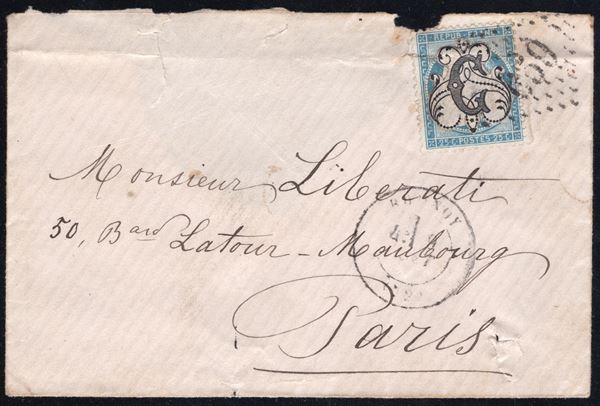 REPUB. FRANC.
25 C POSTES 25 C
Monsieur Liberati
50, Bard Latour-Maubourg
Paris